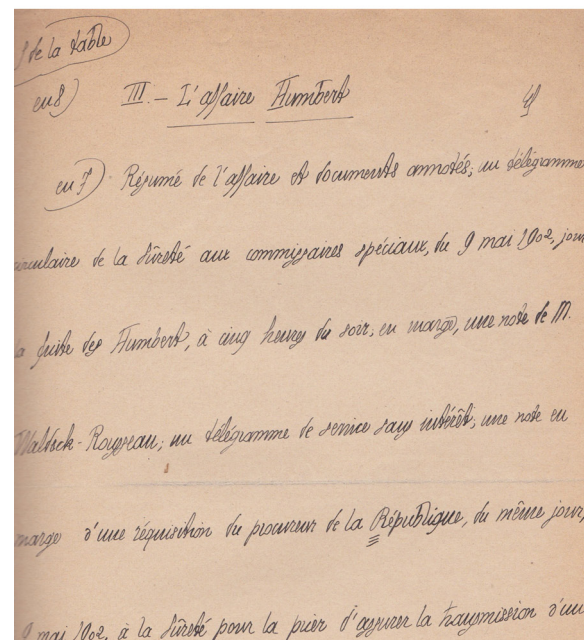 de la table
en 8) III. — L'affaire Humbert
en 7) Résumé de l'affaire et documents annotés; un télégramme
circulaire de la Sûreté aux commissaires spéciaux, du 9 mai 1902, jour
la fuite des Humbert, à cinq heures du soir; en marge, une note de M.
Waldeck-Rousseau; un télégramme de service sans intérêt; une note en
marge d'une réquisition du procureur de la République, du même jour,
9 mai 1902, à la Sûreté pour la prier d'assurer la transmission d'un